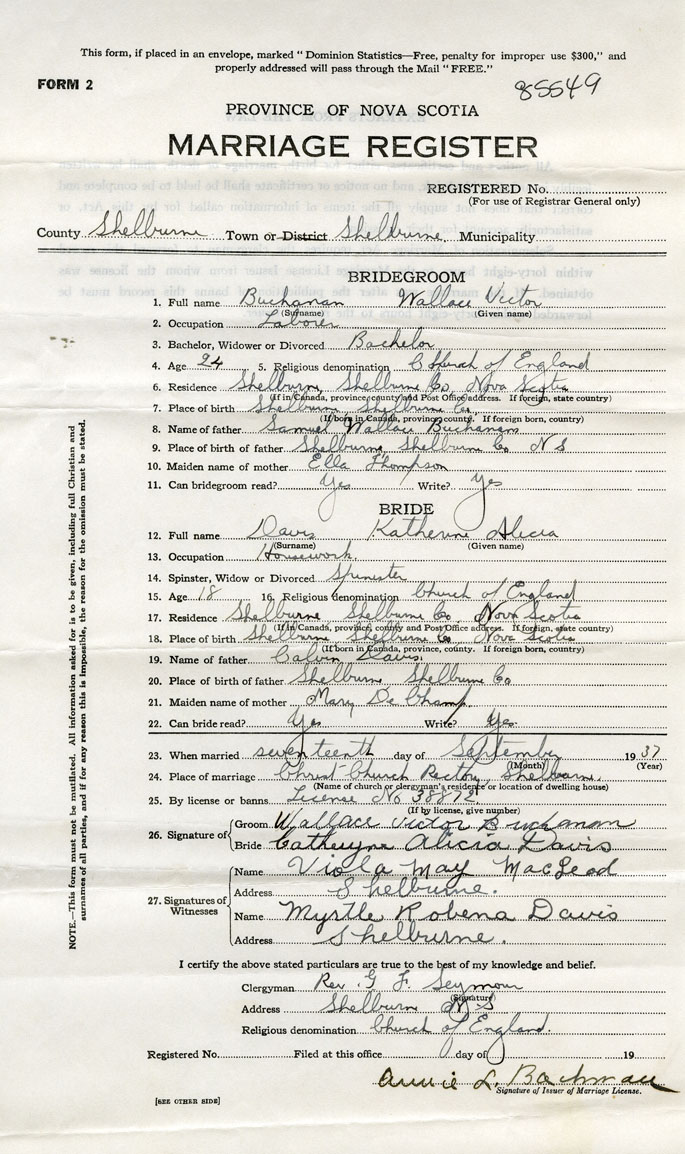 This form, if placed in an envelope, marked "Dominion Statistics—Free, penalty for improper use $300," and
properly addressed will pass through the Mail "FREE."
FORM 2
85549
PROVINCE OF NOVA SCOTIA
MARRIAGE REGISTER
REGISTERED No.
(For use of Registrar General only)
County Shelburne Town or District Shelburne. Municipality
BRIDEGROOM
1. Full name Buchanan Wallace Victor
(Surname) (Given name)
2. Occupation Laborer
3. Bachelor, Widower or Divorced Bachelor
4. Age 24 5. Religious denomination Church of England
6. Residence Shelburne, Shelburne Co, Nova Scotia
(If in Canada, province, county and Post Office address. If foreign, state country)
7. Place of birth Shelburne Shelburne Co.
(If born in Canada, province, county. If foreign born, country)
8. Name of father Samuel Wallace Buchanan
9. Place of birth of father Shelburne Shelburne Co N S
10. Maiden name of mother Ella Thompson
11. Can bridegroom read? Yes Write? Yes
BRIDE
12. Full name Davis Katherine Alicia
(Surname) (Given name)
13. Occupation Housework.
14. Spinster, Widow or Divorced Spinster
15. Age 18 16. Religious denomination Church of England
17. Residence Shelburne Shelburne Co Nova Scotia
(If in Canada, province, county and Post Office address. If foreign, state country)
18. Place of birth Shelburne Shelburne Co Nova Scotia
(If born in Canada, province, county. If foreign born, country)
19. Name of father Calvin Davis
20. Place of birth of father Shelburne Shelburne Co
21. Maiden name of mother Mary De Champ
22. Can bride read? Yes Write? Yes
23. When married seventeenth day of September 1937
(Month) (Year)
24. Place of marriage Christ Church Rectory, Shelburne.
(Name of church or clergyman's residence or location of dwelling house)
25. By license or banns License No 38872
(If by license, give number)
26. Signature of Groom Wallace Victor Buchanan
Bride Catheryne Alicia Davis
27. Signatures of Witnesses
Name Viola May MacLeod
Address Shelburne.
Name Myrtle Robena Davis
Address Shelburne.
I certify the above stated particulars are true to the best of my knowledge and belief.
Clergyman Rev. G F. Seymour
(Signature)
Address Shelburne N S
Religious denomination Church of England.
Registered No. Filed at this office day of 19
Annie L. Bachman
Signature of Issuer of Marriage License.
[SEE OTHER SIDE]
NOTE.—This form must not be mutilated. All information asked for is to be given, including full Christian and
surnames of all parties, and if for any reason this is impossible, the reason for the omission must be stated.